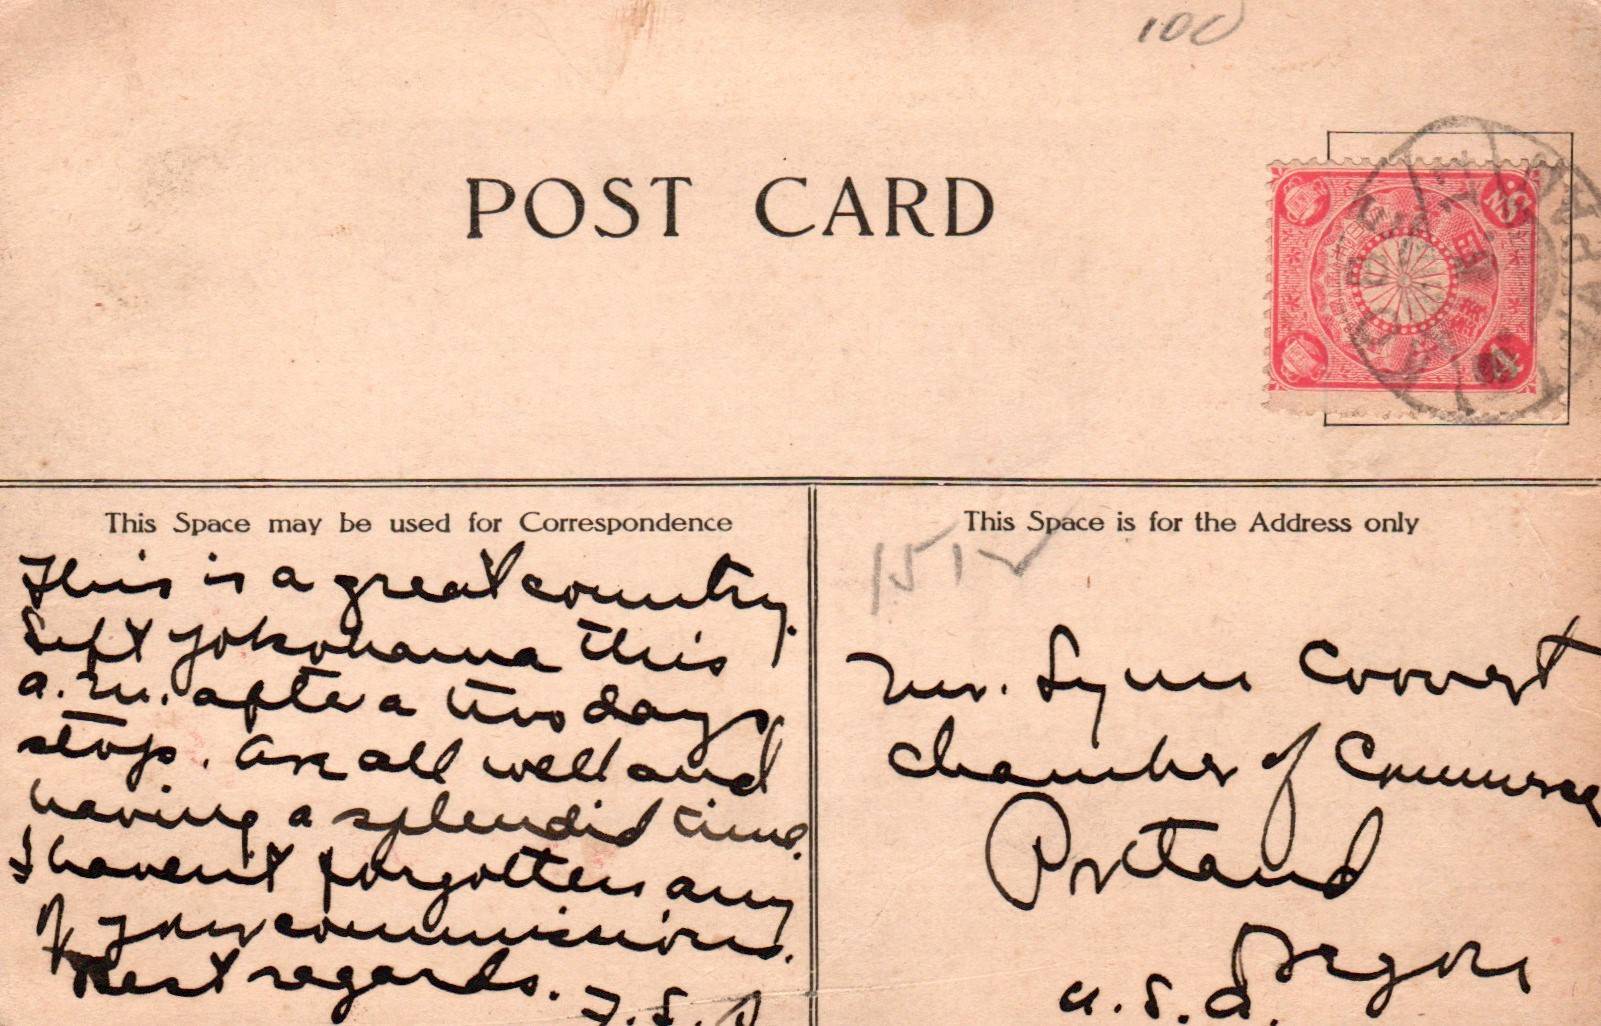 100
POST CARD
KOBE
JAPAN
4
This Space may be used for Correspondence
This is a great country.
Left Yokohama this
a.m. after a two days
stop. Are all well and
having a splendid time.
I haven't forgotten any
of your commissions.
Best regards.
This Space is for the Address only
Mr. Lynn Coovert
Chamber of Commerce
Portland
Oregon
U.S.A.